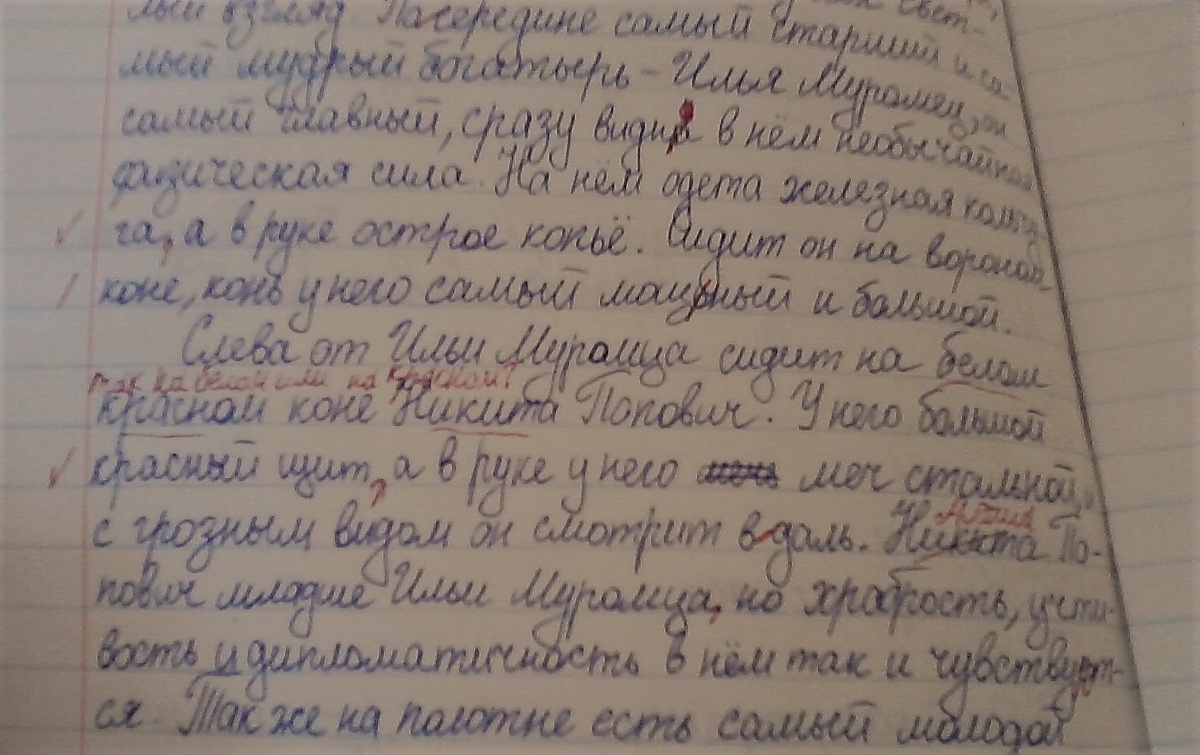 лый взгляд. Посередине самый старший и са-
мый мудрый богатырь - Илья Муромец, он
самый главный, сразу видна в нём необычайная
физическая сила. На нём одета железная кольчу
га, а в руке острое копьё. Сидит он на вороном
коне, конь у него самый мощный и большой.
Слева от Ильи Муромца сидит на белом
так на белом или на красном?
красном коне Никита Попович. У него большой
красный щит, а в руке у него меч стальной,
с грозным видом он смотрит вдаль. Никита По-
Алёша
пович младше Ильи Муромца, но храбрость, учти-
вость и дипломатичность в нём так и чувствует-
ся. Также на полотне есть самый молодой